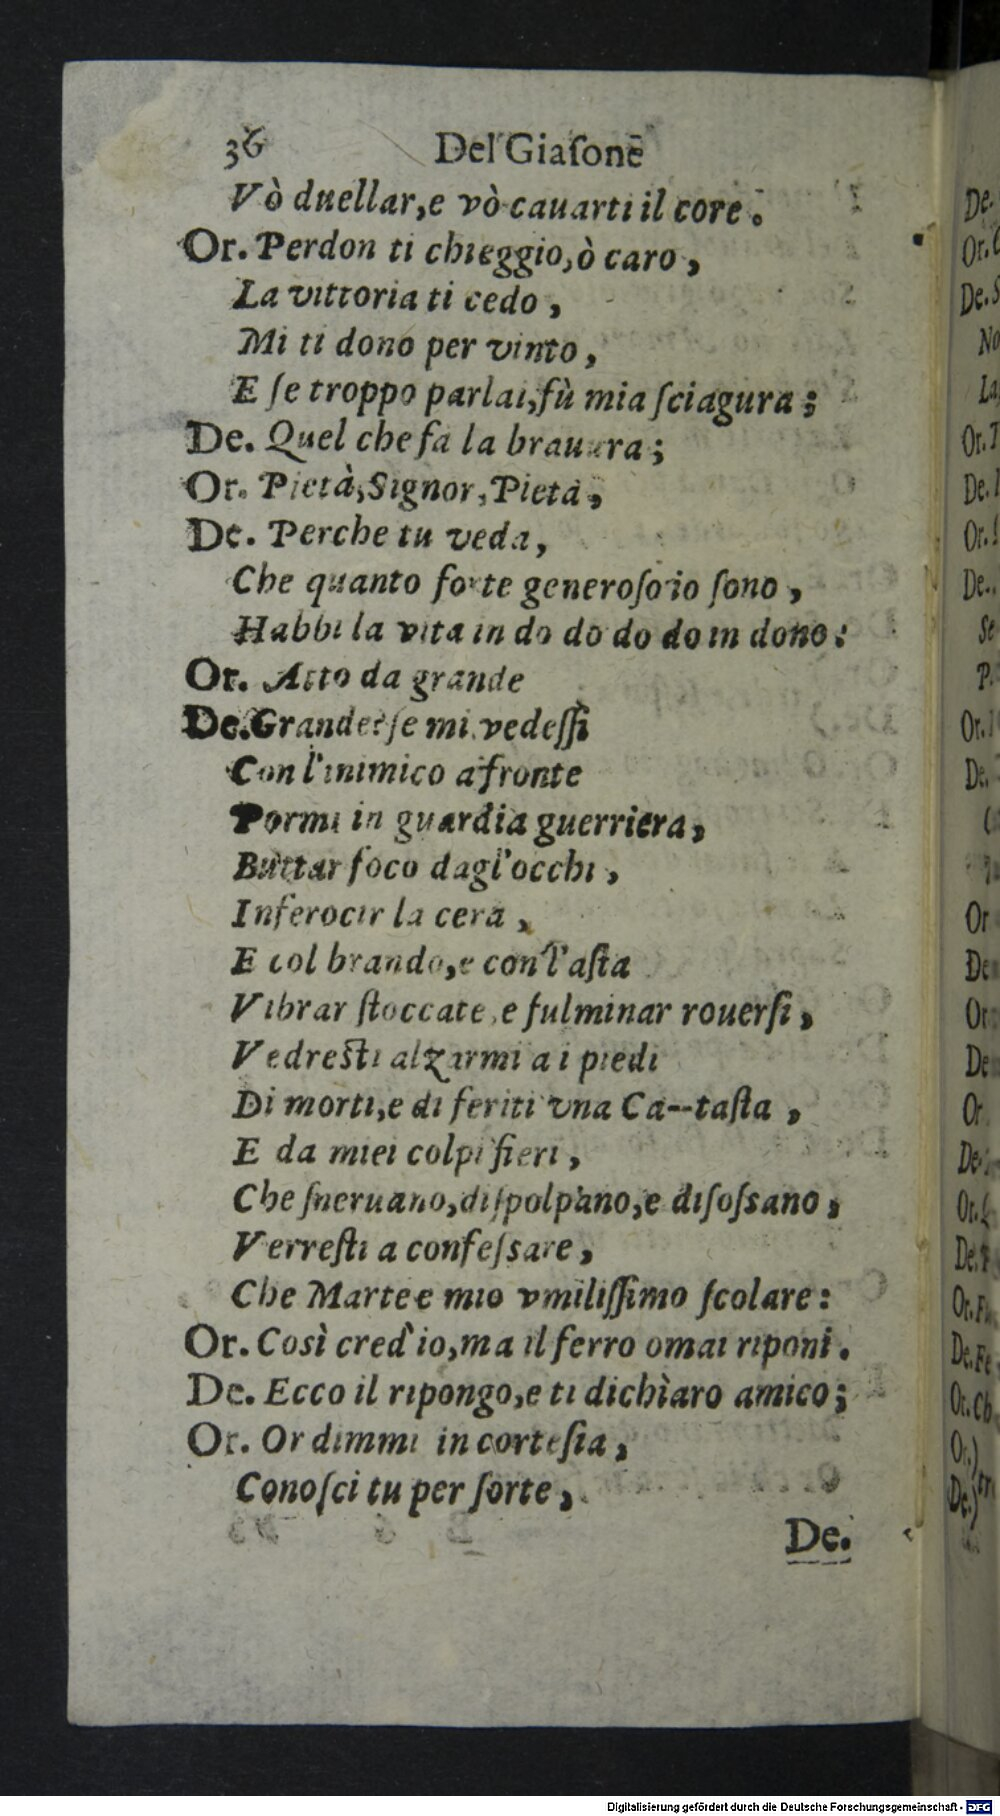 36 Del Giaſonē
Vò duellar,e vò cauarti il core.
Or. Perdon ti chieggio,ò caro,
La vittoria ti cedo,
Mi ti dono per vinto,
E ſe troppo parlai,fù mia ſciagura;
De. Quel che fa la brauura;
Or. Pietà,Signor,Pietà,
De. Perche tu veda,
Che quanto forte generoſo io ſono,
Habbi la vita in do do do do in dono:
Or. Atto da grande
De.Grande?ſe mi vedeſſi
Con l'inimico a fronte
Pormi in guardia guerriera,
Buttar foco dagl'occhi,
Inferocir la cera,
E col brando,e con l'aſta
Vibrar ſtoccate,e fulminar rouerſi,
Vedreſti alzarmi a i piedi
Di morti,e di feriti vna Ca--taſta,
E da miei colpi fieri,
Che ſneruano,diſpolpano,e diſoſsano,
Verreſti a confeſsare,
Che Marte e mio vmiliſſimo ſcolare:
Or. Così cred'io,ma il ferro omai riponi.
De. Ecco il ripongo,e ti dichiaro amico;
Or. Or dimmi in corteſia,
Conoſci tu per ſorte,
De.
De.
Or.
De.S
No
La
Or.
De.
Or.
De.
Se
P.
Or.
De.
Or
De
Or
De
Or
De.
Or.
De.
Or.
De.Fe
Or.Ch
Or.)
De.)
Digitalisierung gefördert durch die Deutsche Forschungsgemeinschaft - DFG